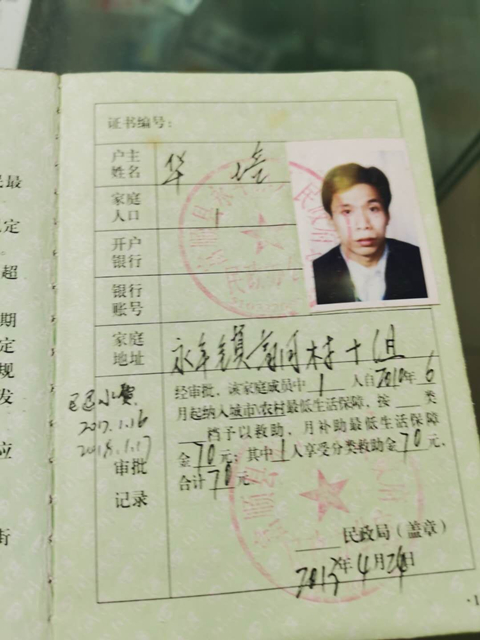 证书编号:
户主
姓名 华
家庭
人口 1
开户
银行
银行
账号
家庭
地址 永年镇前河村十组
经审批,该家庭成员中1人自2010年6
月起纳入城市\农村最低生活保障,按 类
档予以救助,月补助最低生活保障
金70元;其中1人享受分类救助金70元,
合计70元
审批
记录
2017.1.16
2018.1.17
民政局(盖章)
年4月24日
民最
定
超
期
定
规
发
应
街